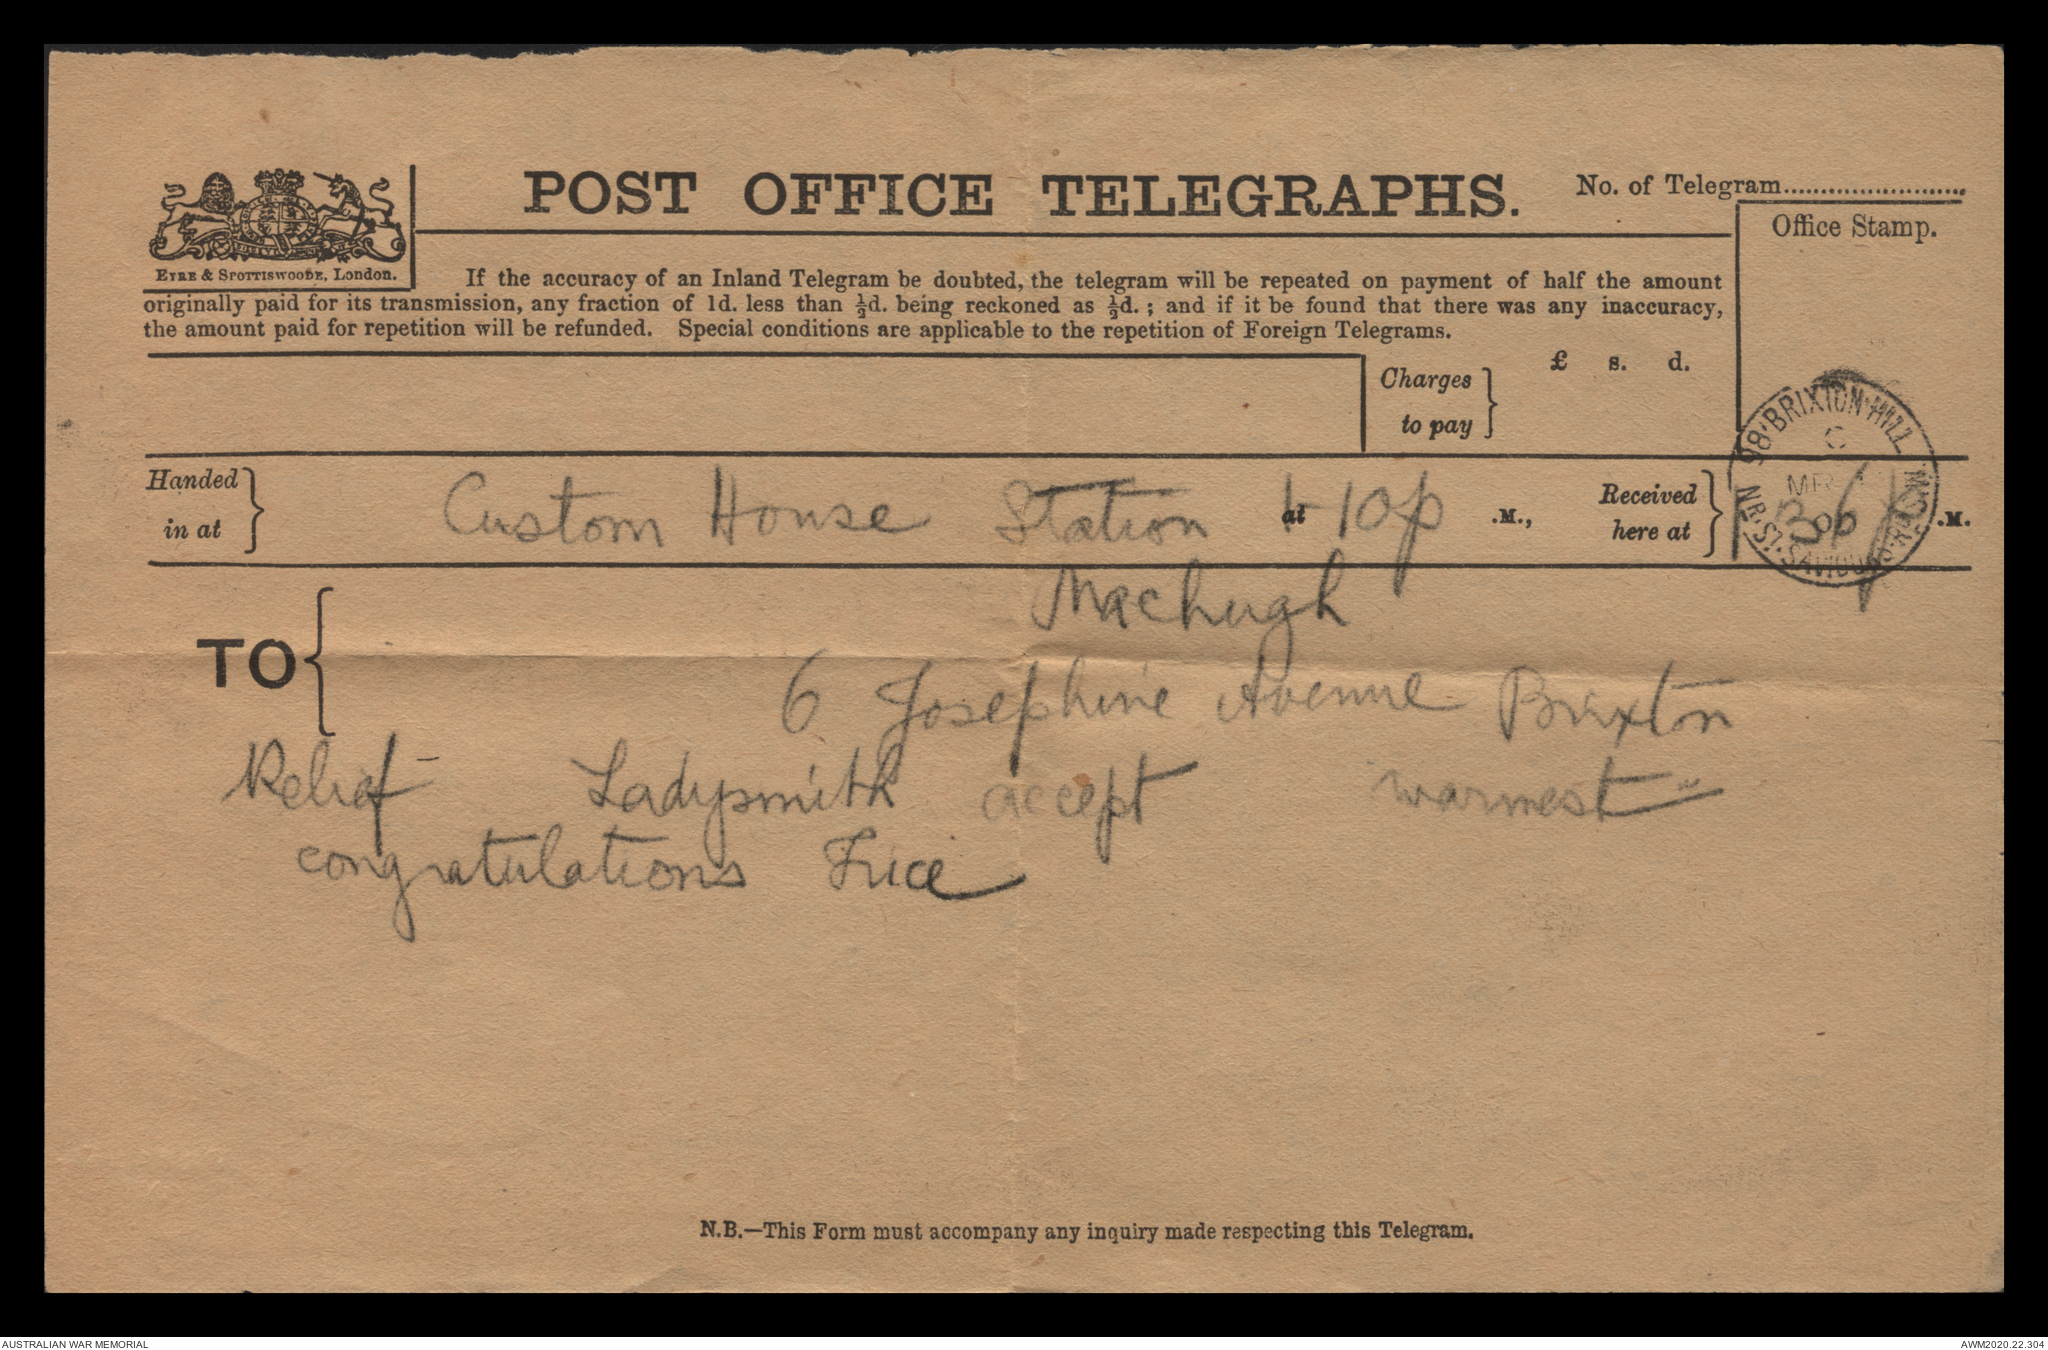 POST OFFICE TELEGRAPHS.
No. of Telegram
Office Stamp.
EYRE & SPOTTISWOODE, London.
If the accuracy of an Inland Telegram be doubted, the telegram will be repeated on payment of half the amount
originally paid for its transmission, any fraction of 1d. less than ½d. being reckoned as ½d.; and if it be found that there was any inaccuracy,
the amount paid for repetition will be refunded. Special conditions are applicable to the repetition of Foreign Telegrams.
Charges to pay £ s. d.
98 BRIXTON HILL
Handed in at Custom House Station at 1-10p .M., Received here at .M.
TO
Machugh
6 Josephine Avenue Brixton
Relief Ladysmith accept warmest
congratulations Frice
N.B.—This Form must accompany any inquiry made respecting this Telegram.
AUSTRALIAN WAR MEMORIAL
AWM2020.22.304